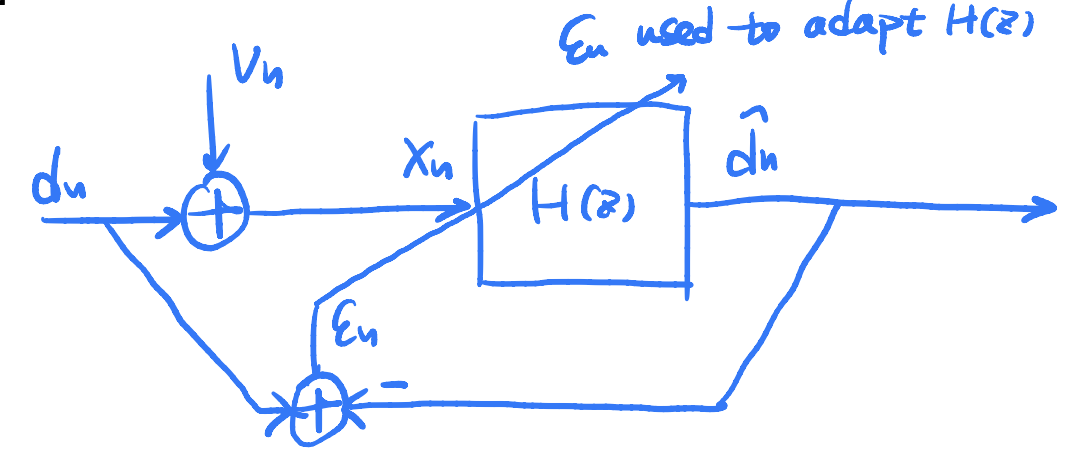 εₙ used to adapt H(z)
vₙ
dₙ
+
xₙ
H(z)
d̂ₙ
εₙ
+
-